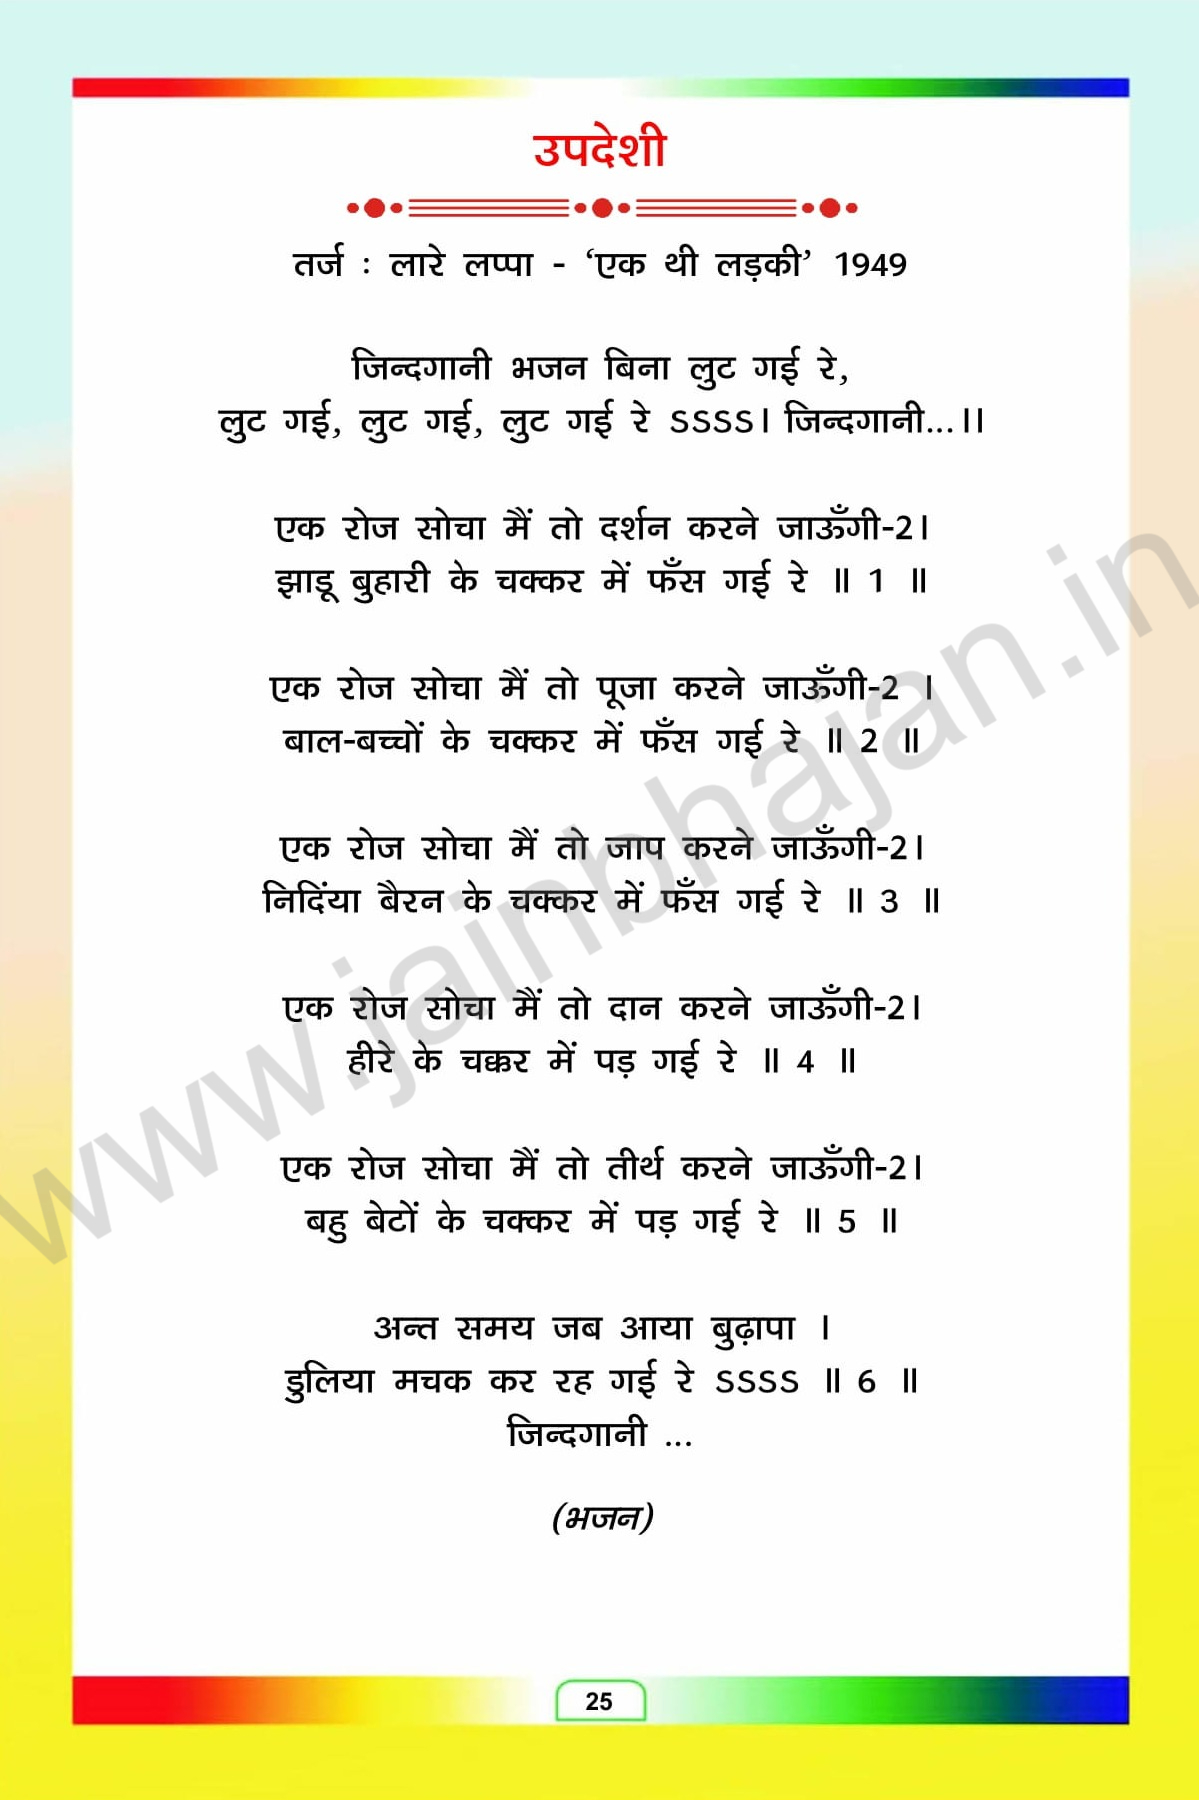 उपदेशी
तर्ज : लारे लप्पा - ‘एक थी लड़की’ 1949
जिन्दगानी भजन बिना लुट गई रे,
लुट गई, लुट गई, लुट गई रे SSSS। जिन्दगानी...।।
एक रोज सोचा मैं तो दर्शन करने जाऊँगी-2।
झाडू बुहारी के चक्कर में फँस गई रे ॥ 1 ॥
एक रोज सोचा मैं तो पूजा करने जाऊँगी-2 ।
बाल-बच्चों के चक्कर में फँस गई रे ॥ 2 ॥
एक रोज सोचा मैं तो जाप करने जाऊँगी-2।
निदिंया बैरन के चक्कर में फँस गई रे ॥ 3 ॥
एक रोज सोचा मैं तो दान करने जाऊँगी-2।
हीरे के चक्कर में पड़ गई रे ॥ 4 ॥
एक रोज सोचा मैं तो तीर्थ करने जाऊँगी-2।
बहु बेटों के चक्कर में पड़ गई रे ॥ 5 ॥
अन्त समय जब आया बुढ़ापा ।
डुलिया मचक कर रह गई रे SSSS ॥ 6 ॥
जिन्दगानी ...
(भजन)
25
www.jainbhajan.in